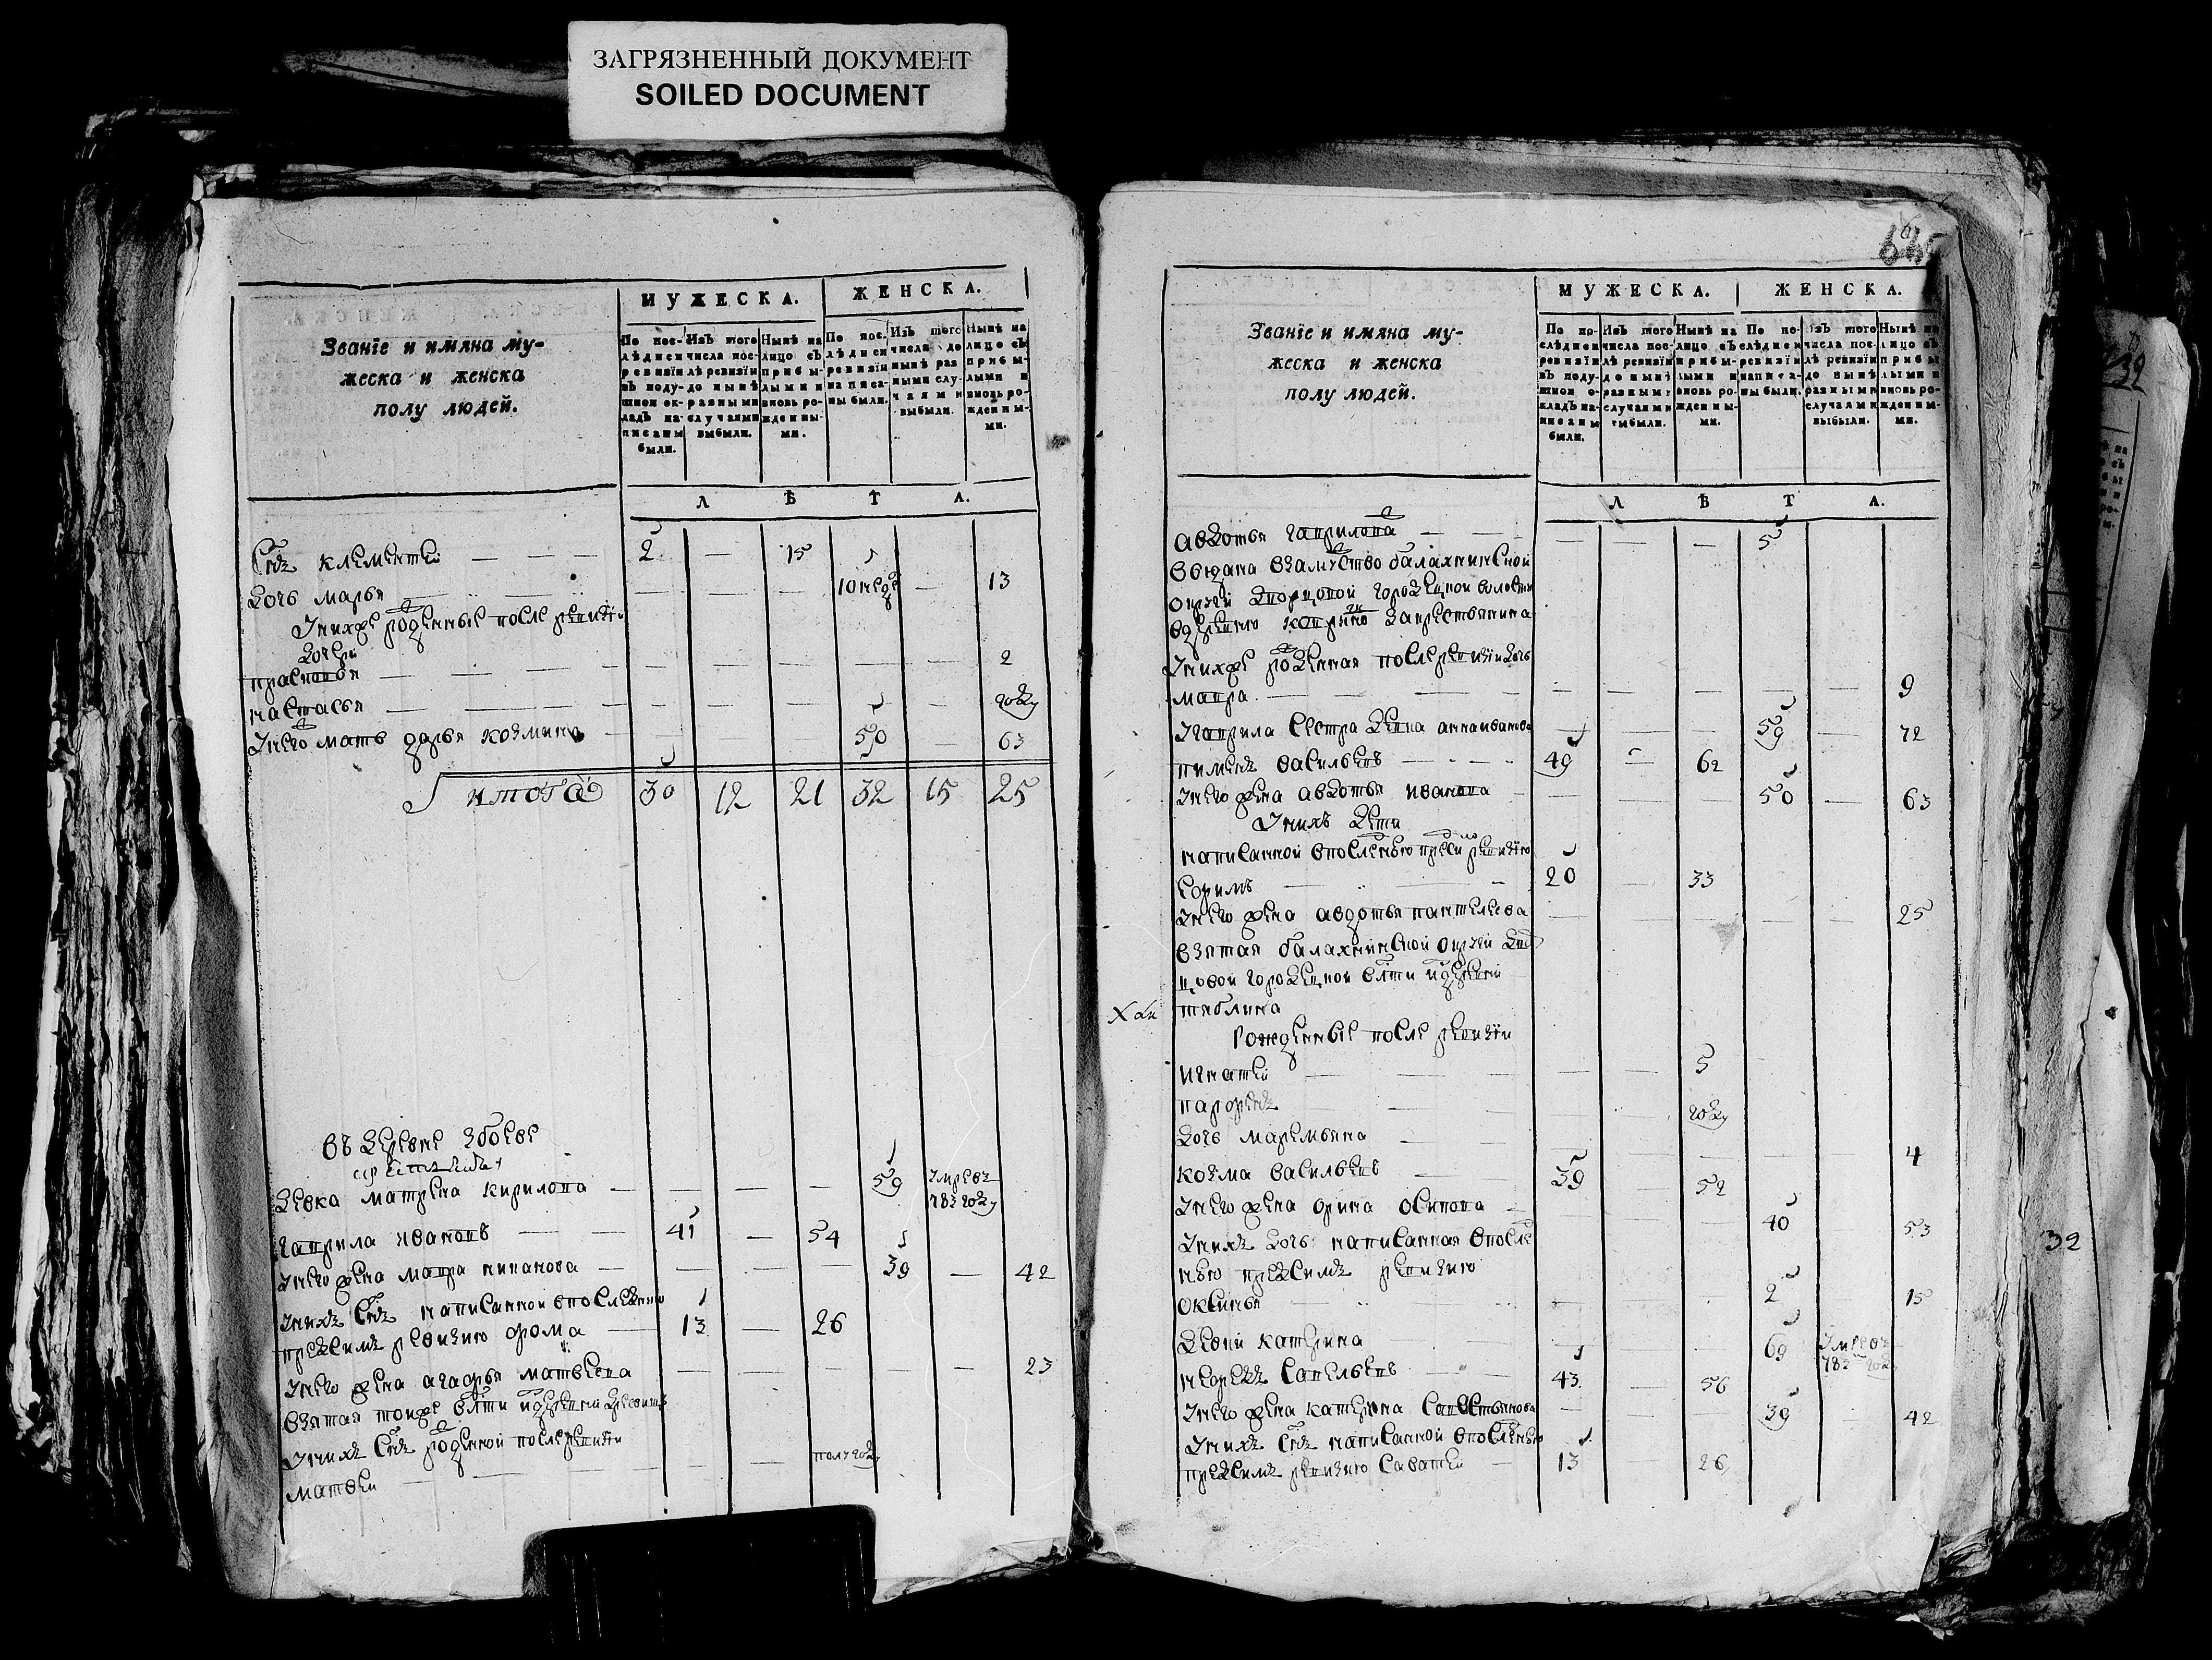 ЗАГРЯЗНЕННЫЙ ДОКУМЕНТ
SOILED DOCUMENT
Званїе и имяна му-
жеска и женска
полу людей.
МУЖЕСКА.
ЖЕНСКА.
По пос-
лѣдней
ревизіи
въ поду-
шной ок-
ладъ на-
писаны
были.
Изъ того
числа пос-
лѣ ревизїи
до нынѣ
разными
случаями
выбыли.
Нынѣ на
лицо съ
прибы-
лыми и
вновь ро-
жденны-
ми.
По пос-
лѣдней
ревизїи
написа-
ны были.
Изъ того
числа до
нынѣ раз
ными слу-
чаями
выбыли.
Нынѣ на
лицо съ
прибы-
лыми и
вновь ро-
жденны-
ми.
Л Ѣ Т А.
Снъ климентей — 2 — 15
дочь марья — 10 недѣ — 13
Унихже рожденные после ревизїи
дочери
прасковья — 2
настасья — году
Унего мать дарья козмина 50 — 63
итого 30 12 21 32 15 25
въ деревне збоеве
девка матрена кирилова — 59 умре въ
783 году
гаврила иванов 41 — 54
Унего жена мавра — 39 — 42
Унихъ снъ написанной впоследнюю
предсимъ ревизию фома — 13 — 26
Унего жена агафья матвеева — 23
взятая тоиже влти
Унихъ снъ рожденной послеревизїи
матвей — полугоду
Званїе и имяна му-
жеска и женска
полу людей.
МУЖЕСКА.
ЖЕНСКА.
По по-
слѣдней
ревизїи
въ поду-
шной о-
кладъ на-
писаны
были.
Изъ того
числа пос-
лѣ ревизїи
до нынѣ
разными
случаями
выбыли.
Нынѣ на
лицо съ
прибы-
лыми и
вновь ро-
жденны-
ми.
По по-
слѣдней
ревизїи
написа-
ны были.
Изъ того
числа пос-
лѣ ревизїи
до нынѣ
разными
случаями
выбыли.
Нынѣ на
лицо съ
прибы
лыми и
вновь ро-
жденны-
ми.
Л Ѣ Т А.
авдотья гаврилова — 5
выдана взамуство балахнинской
округи дворцовой городецкой волости
вдеревню закрестьянина
Унихже рожденная послеревизїи дочь
мавра — 9
Угаврила сестра девка аннаиванова 59 — 72
пименъ васильевъ — 49 — 62
Унего жена авдотья иванова — 50 — 63
Унихъ дети
написанной впоследнюю пред сим ревизїю
ефимъ 20 — 33
Унего жена авдотья пантелеева — 25
взятая балахнинской округи двор
цовой городецкой влти издеревни
Рожденные после ревизїи
игнатей — 5
парфенъ — году
дочь маремьяна — 4
козма васильевъ 39 52
Унего жена орина осипова — 40 53
Унихъ дочь написанная впослед
нюю предсимъ ревизию
оксинья 2 15
девки катерина — 69 умре въ
783 году
нефедъ савельевъ 43 — 56
Унего жена катерина савостьянова 39 42
Унихъ снъ написанной впоследнюю
предсимъ ревизию саватей 13 — 26
32